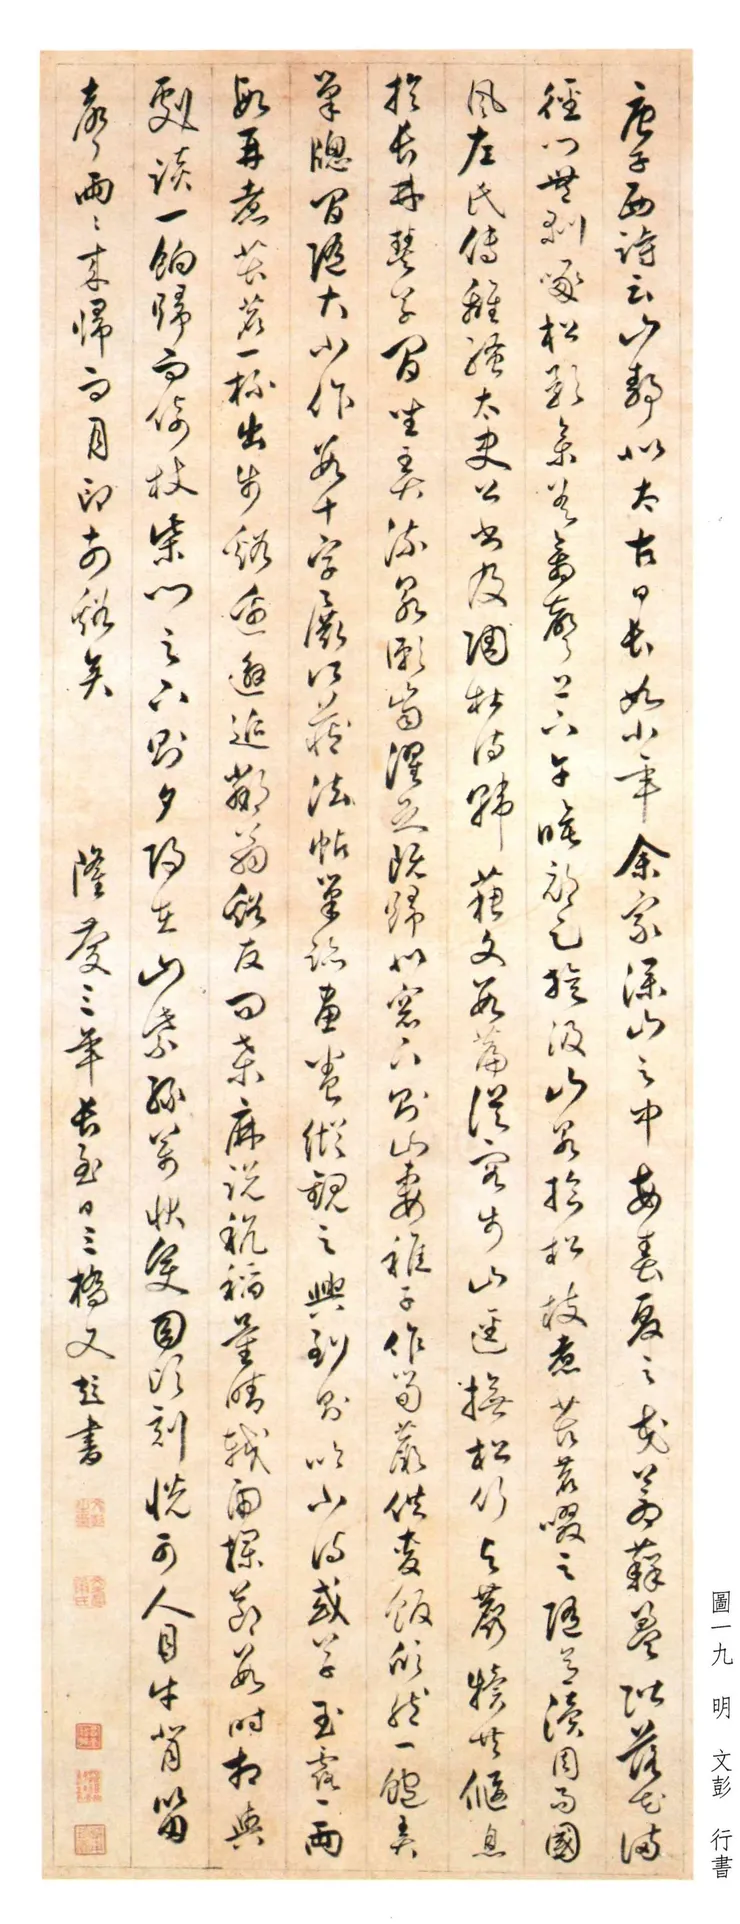 唐子西詩云山靜似太古日長如小年余家深山之中每春夏之交蒼蘚盈階落花滿
徑門無剝啄松影參差禽聲上下午睡初足旋汲山泉拾松枝煮苦茗啜之隨意讀周易國
風左氏傳離騷太史公書及陶杜詩韓蘇文數篇從容步山逕撫松竹與麛犢共偃息
於長林豐草間坐弄流泉漱齒濯足既歸竹窓下則山妻稚子作筍蕨供麥飯欣然一飽弄
筆牕間隨大小作數十字展所藏法帖筆跡畫卷縱觀之興到則吟小詩或草玉露一兩
段再煮苦茗一杯出步谿邊邂逅鄰翁谿友問桑麻說秔稻量晴較雨探節數時相與
劇談一餉歸而倚杖柴門之下則夕陽在山紫綠萬狀變幻頃刻恍可人目牛背笛
聲兩兩來歸而月印前谿矣 隆慶三年長至日三橋文彭書
圖一九 明 文彭 行書